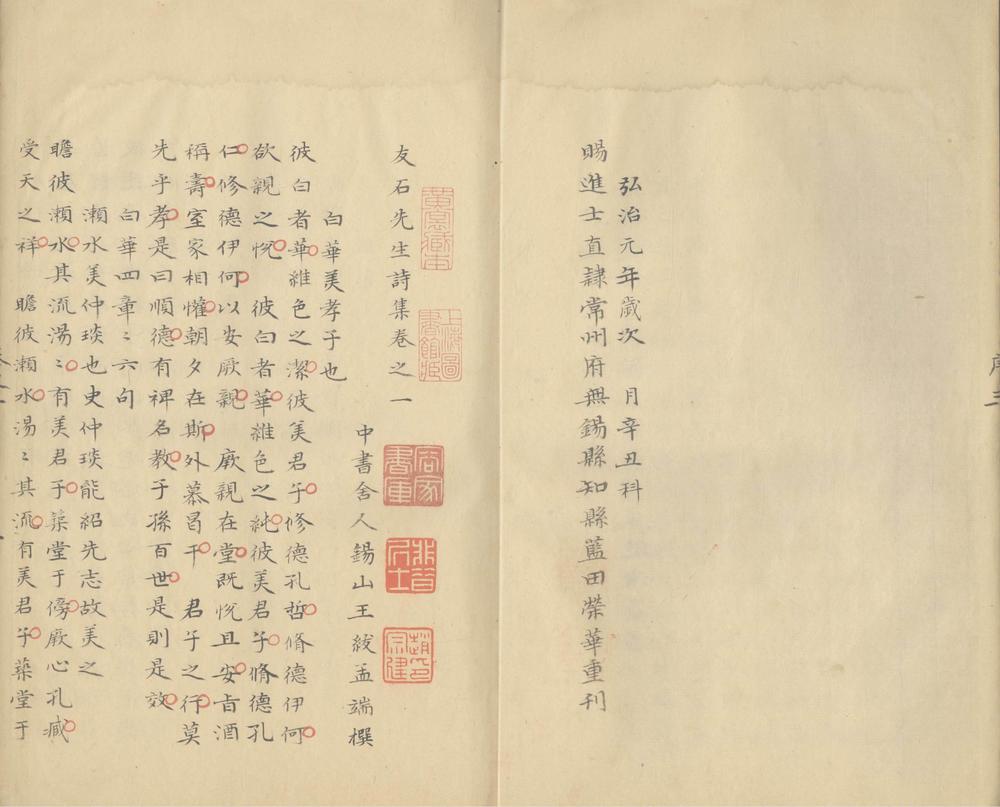 弘治元年歲次 月辛丑科
賜進士直隸常州府無錫縣知縣藍田榮華重刊
序 三
友石先生詩集卷之一
中書舍人錫山王紱孟端撰
白華美孝子也
彼白者華維色之潔彼美君子修德孔哲脩德伊何
欲親之悅 彼白者華維色之純彼美君子脩德孔
仁修德伊何以安厥親 厥親在堂既悅且安旨酒
稱壽室家相懽朝夕在斯外慕曷干 君子之行莫
先乎孝是曰順德有裨名教子孫百世是則是效
白華四章〻六句
瀨水美仲琰也史仲琰能紹先志故美之
瞻彼瀨水其流湯〻有美君子築堂于傍厥心孔臧
受天之祥 瞻彼瀨水湯〻其流有美君子築堂于
上海圖書館藏
非昔居士
趙宗建印